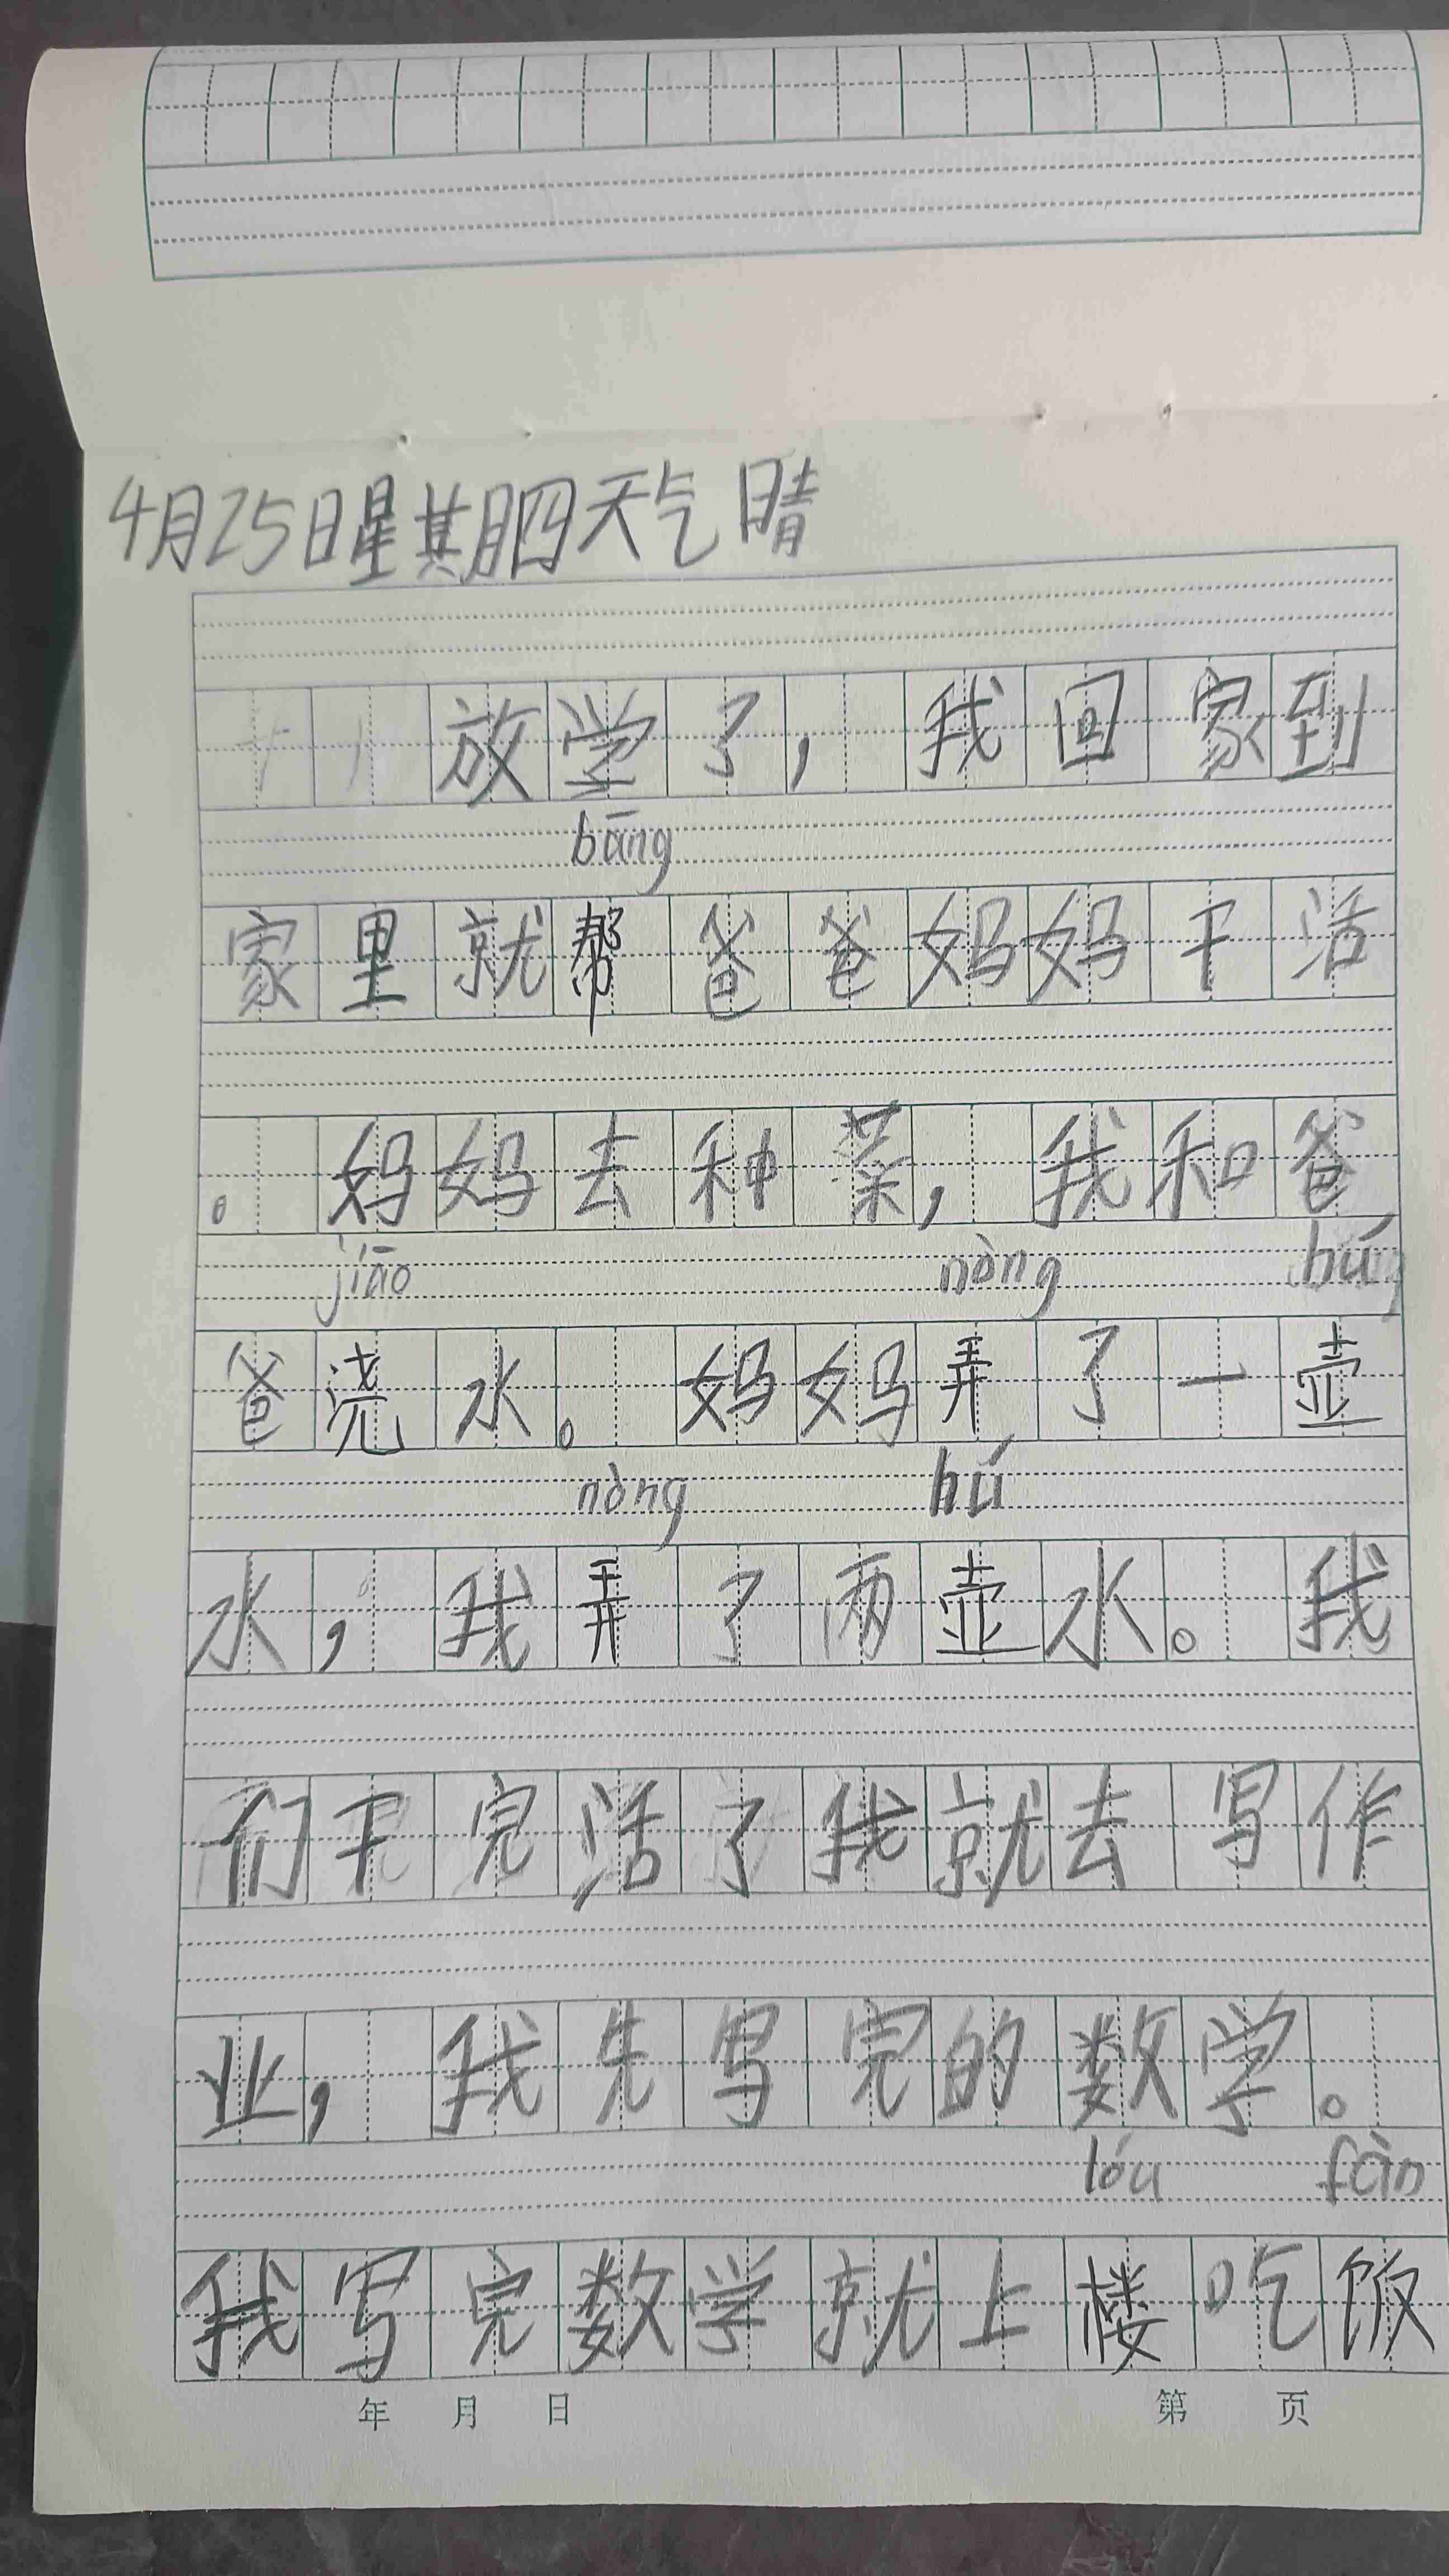 4月25日星期四天气晴
放学了，我回家到
bāng
家里就帮爸爸妈妈干活
。妈妈去种菜，我和爸
jiāo nòng hú
爸浇水。妈妈弄了一壶
nòng hú
水，我弄了两壶水。我
们干完活了我就去写作
业，我先写完的数学。
lóu fàn
我写完数学就上楼吃饭
年 月 日 第 页